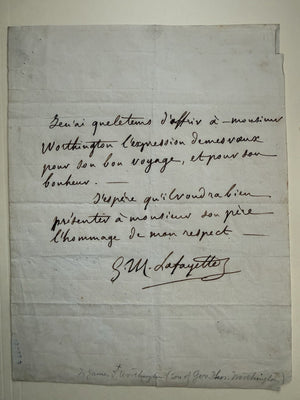 Je n'ai que le tems d'offrir à monsieur
Worthington l'expression de mes vœux
pour son bon voyage, et pour son
bonheur.
J'espère qu'il voudra bien
présenter à monsieur son père
l'hommage de mon respect
G. W. Lafayette
To James T. Worthington (son of Gov. Thos. Worthington)